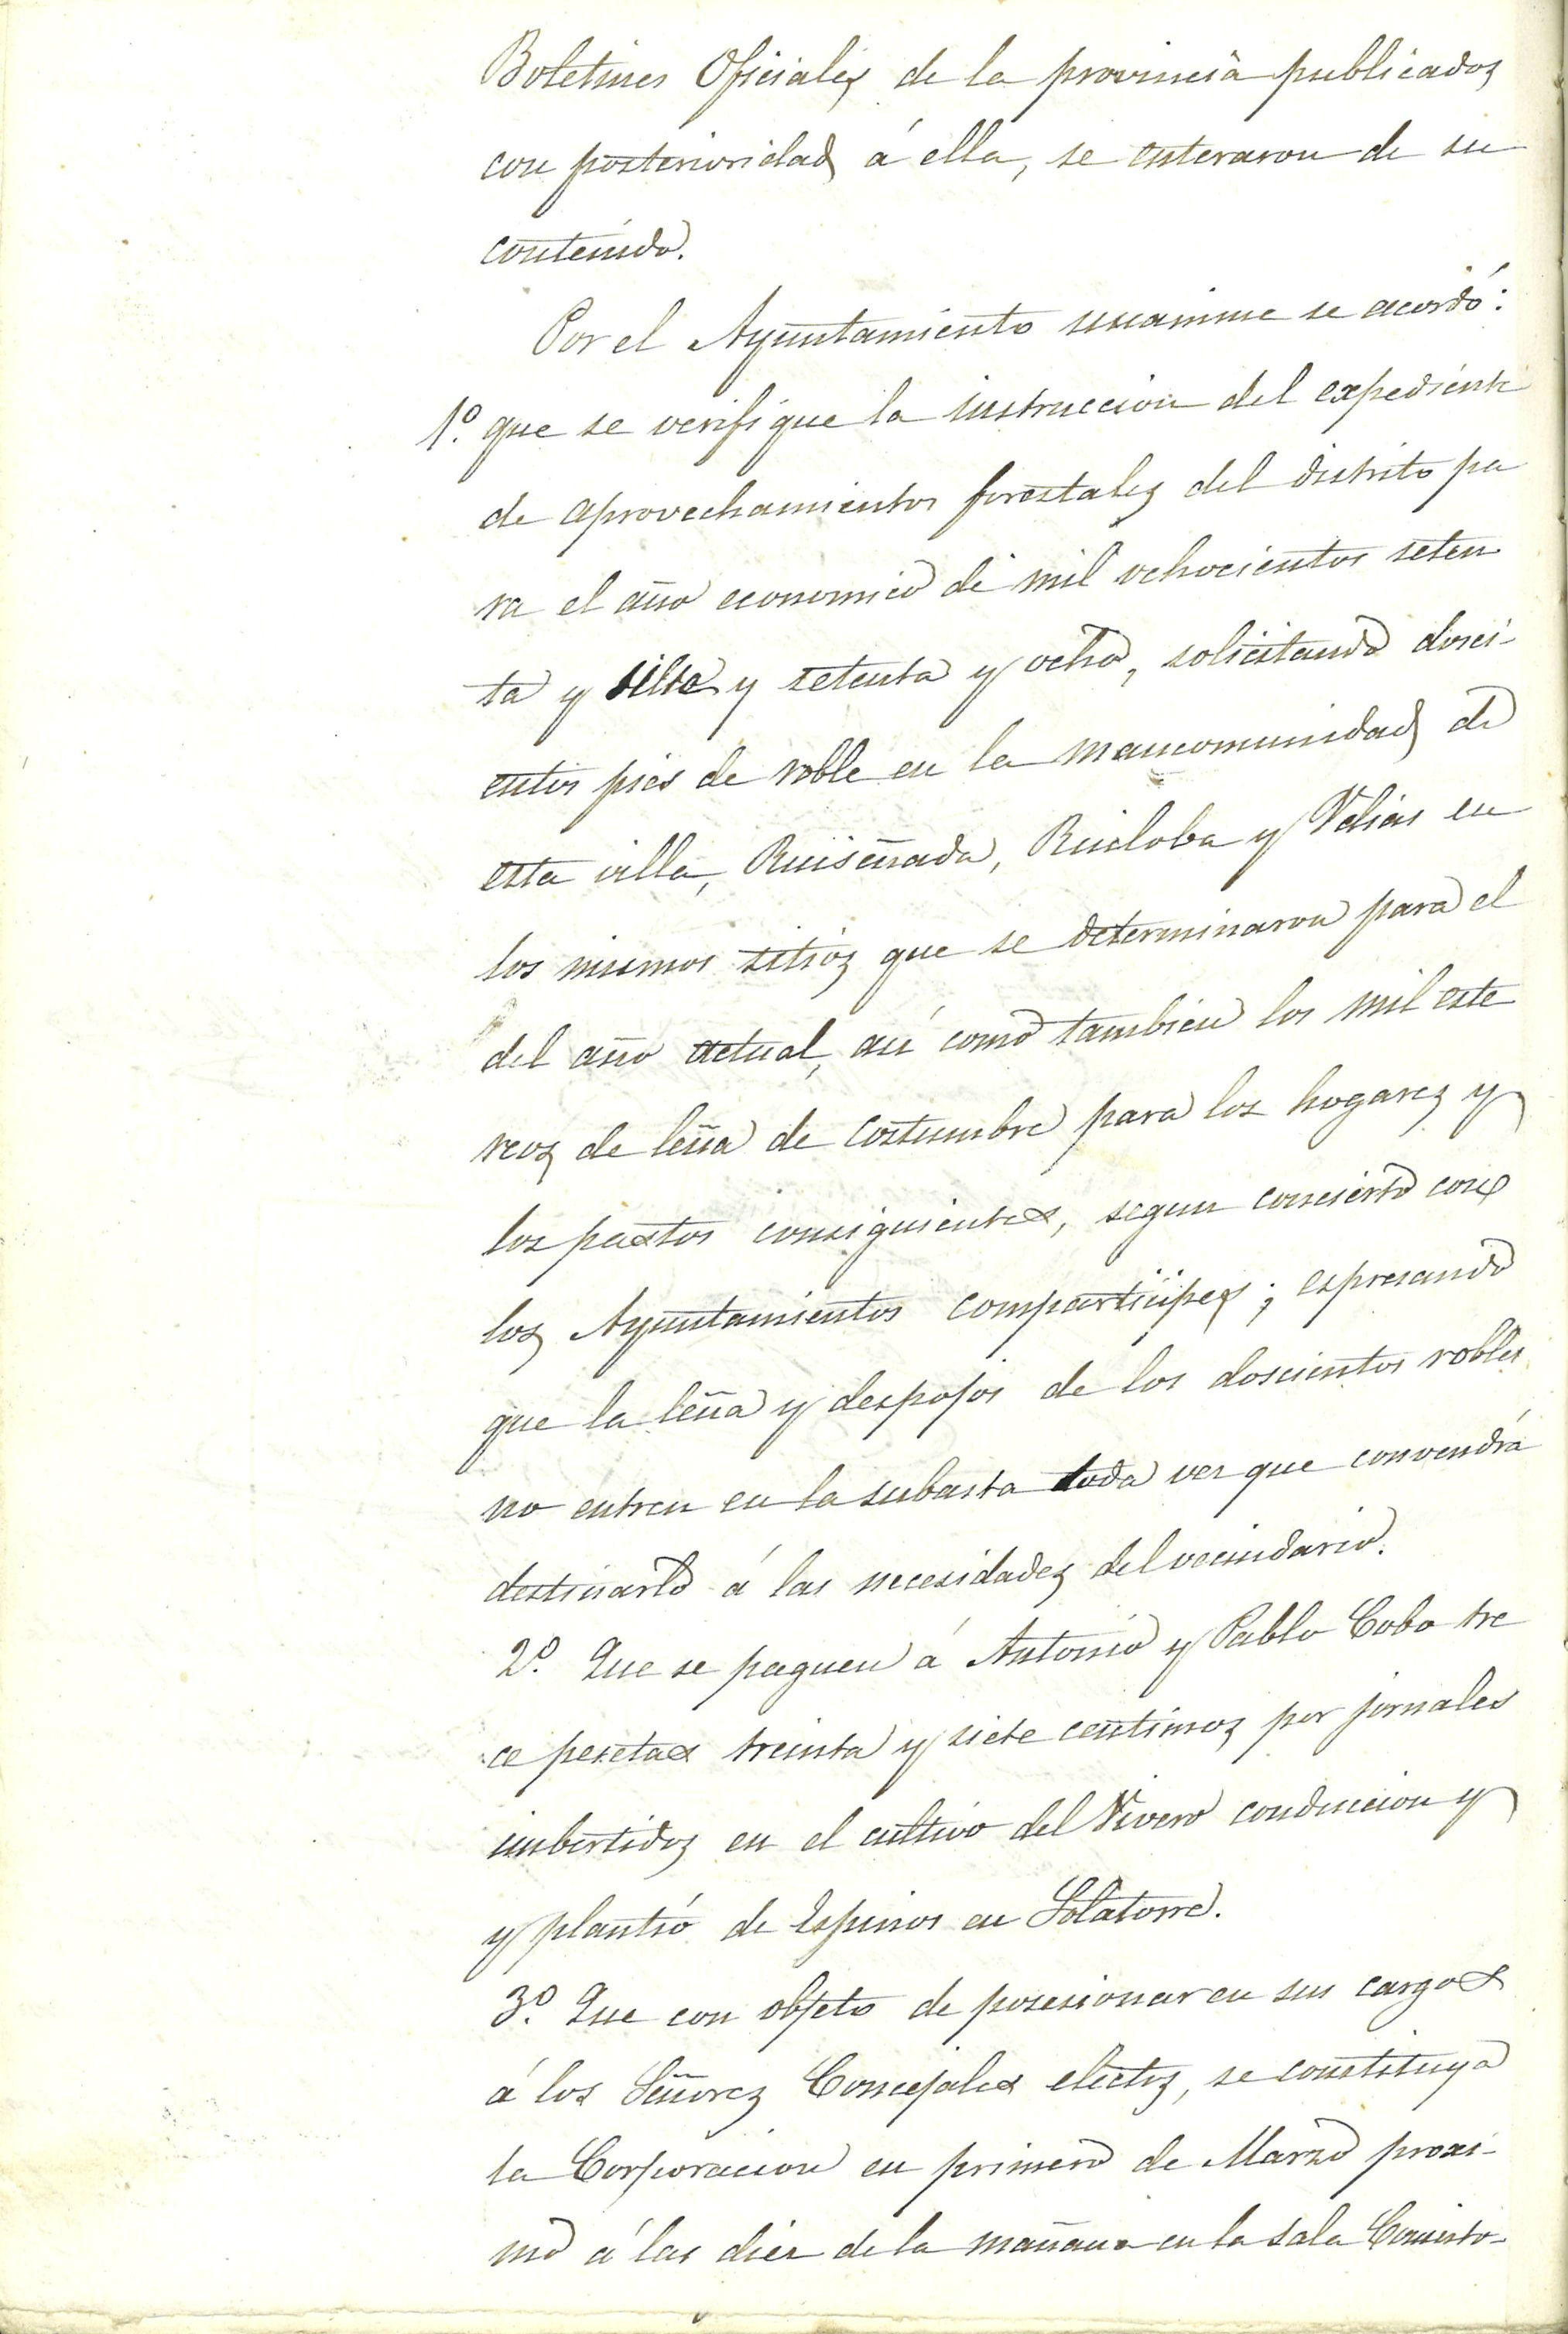 Boletines Oficiales de la provincia publicados
con posterioridad á ella, se enteraron de su
contenido.
Por el Ayuntamiento unanime se acordó:
1º. que se verifique la instruccion del expediente
de aprovechamientos forestales del distrito pa
ra el año economico de mil ochocientos seten
ta y siete y setenta y ocho, solicitando dosci-
entos pies de roble en la mancomunidad de
esta villa, Ruiseñada, Ruiloba y Udias en
los mismos sitios que se determinaron para el
del año actual, así como tambien los mil este
reos de leña de costumbre para los hogares y
los pastos consiguientes, segun concierto con
los Ayuntamientos comparticipes; espresando
que la leña y despojos de los doscientos robles
no entren en la subasta toda vez que convendrá
destinarlo á las necesidades del vecindario.
2º. Que se paguen á Antonio y Pablo Cobo tre
ce pesetas treinta y siete centimos por jornales
inbertidos en el cultivo del Vivero conduccion y
y plantío de Espinos en Solatorre.
3º. Que con objeto de posesionar en sus cargos
á los Señores Concejales electos, se constituya
la Corporacion en primero de Marzo proxi-
mo á las diez de la mañana en la sala Consisto-